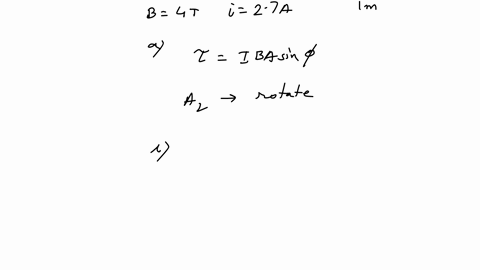 B = 4T i = 2.7A 1m
a) τ = IBA sin φ
A₂ → rotate
i)